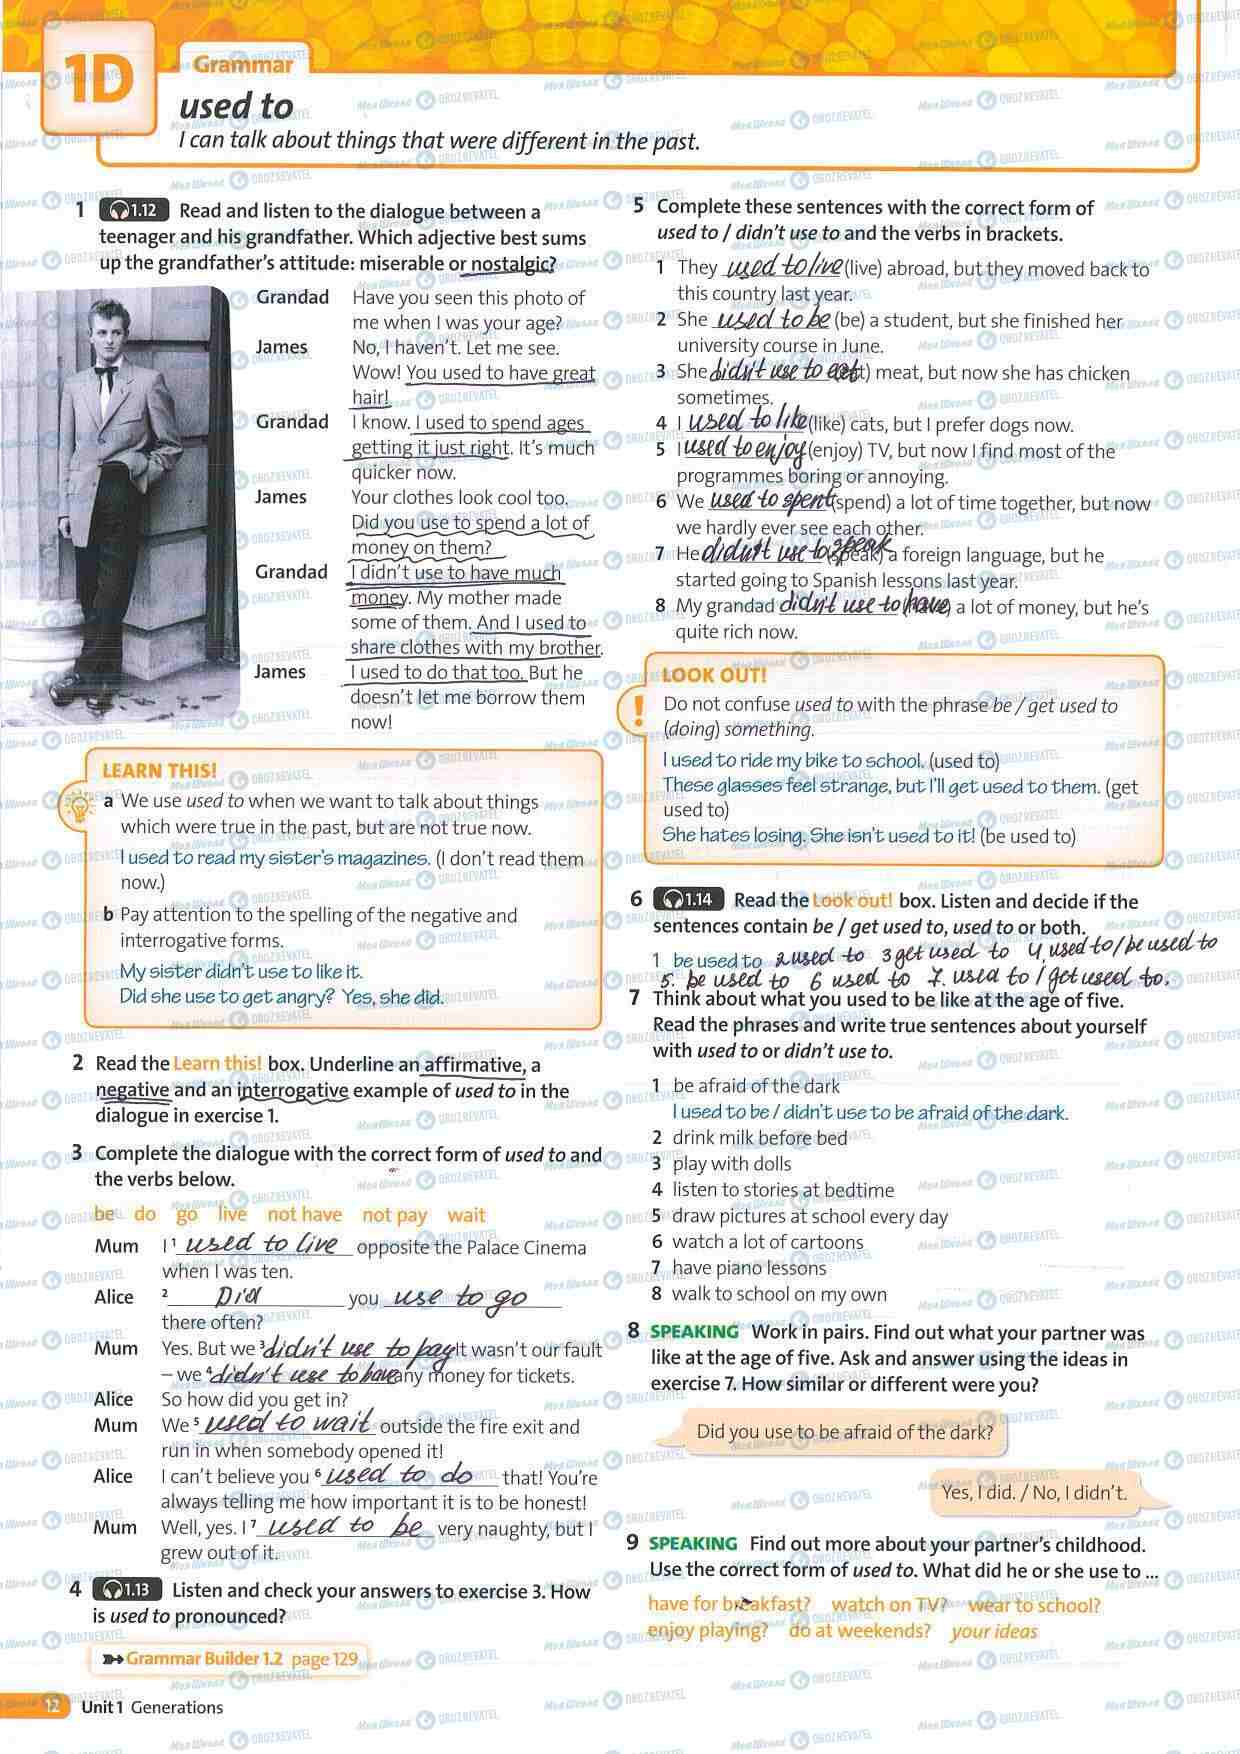 1D
Grammar
used to
I can talk about things that were different in the past.
1 1.12 Read and listen to the dialogue between a
teenager and his grandfather. Which adjective best sums
up the grandfather's attitude: miserable or nostalgic?
Grandad Have you seen this photo of
me when I was your age?
James No, I haven't. Let me see.
Wow! You used to have great
hair!
Grandad I know. I used to spend ages
getting it just right. It's much
quicker now.
James Your clothes look cool too.
Did you use to spend a lot of
money on them?
Grandad I didn't use to have much
money. My mother made
some of them. And I used to
share clothes with my brother.
James I used to do that too. But he
doesn't let me borrow them
now!
LEARN THIS!
a We use used to when we want to talk about things
which were true in the past, but are not true now.
I used to read my sister's magazines. (I don't read them
now.)
b Pay attention to the spelling of the negative and
interrogative forms.
My sister didn't use to like it.
Did she use to get angry? Yes, she did.
2 Read the Learn this! box. Underline an affirmative, a
negative and an interrogative example of used to in the
dialogue in exercise 1.
3 Complete the dialogue with the correct form of used to and
the verbs below.
be do go live not have not pay wait
Mum I ¹ used to live opposite the Palace Cinema
when I was ten.
Alice ² Did you use to go
there often?
Mum Yes. But we ³ didn't use to pay It wasn't our fault
– we ⁴ didn't use to have any money for tickets.
Alice So how did you get in?
Mum We ⁵ used to wait outside the fire exit and
run in when somebody opened it!
Alice I can't believe you ⁶ used to do that! You're
always telling me how important it is to be honest!
Mum Well, yes. I ⁷ used to be very naughty, but I
grew out of it.
4 1.13 Listen and check your answers to exercise 3. How
is used to pronounced?
Grammar Builder 1.2 page 129
12 Unit 1 Generations
5 Complete these sentences with the correct form of
used to / didn't use to and the verbs in brackets.
1 They used to live (live) abroad, but they moved back to
this country last year.
2 She used to be (be) a student, but she finished her
university course in June.
3 She didn't use to eat (eat) meat, but now she has chicken
sometimes.
4 I used to like (like) cats, but I prefer dogs now.
5 I used to enjoy (enjoy) TV, but now I find most of the
programmes boring or annoying.
6 We used to spent (spend) a lot of time together, but now
we hardly ever see each other.
7 He didn't use to speak (speak) a foreign language, but he
started going to Spanish lessons last year.
8 My grandad didn't use to have (have) a lot of money, but he's
quite rich now.
LOOK OUT!
Do not confuse used to with the phrase be / get used to
(doing) something.
I used to ride my bike to school. (used to)
These glasses feel strange, but I'll get used to them. (get
used to)
She hates losing. She isn't used to it! (be used to)
6 1.14 Read the Look out! box. Listen and decide if the
sentences contain be / get used to, used to or both.
1 be used to 2 used to 3 get used to 4 used to/be used to
5. be used to 6 used to 7. used to / get used to.
7 Think about what you used to be like at the age of five.
Read the phrases and write true sentences about yourself
with used to or didn't use to.
1 be afraid of the dark
I used to be / didn't use to be afraid of the dark.
2 drink milk before bed
3 play with dolls
4 listen to stories at bedtime
5 draw pictures at school every day
6 watch a lot of cartoons
7 have piano lessons
8 walk to school on my own
8 SPEAKING Work in pairs. Find out what your partner was
like at the age of five. Ask and answer using the ideas in
exercise 7. How similar or different were you?
Did you use to be afraid of the dark?
Yes, I did. / No, I didn't.
9 SPEAKING Find out more about your partner's childhood.
Use the correct form of used to. What did he or she use to ...
have for breakfast? watch on TV? wear to school?
enjoy playing? do at weekends? your ideas